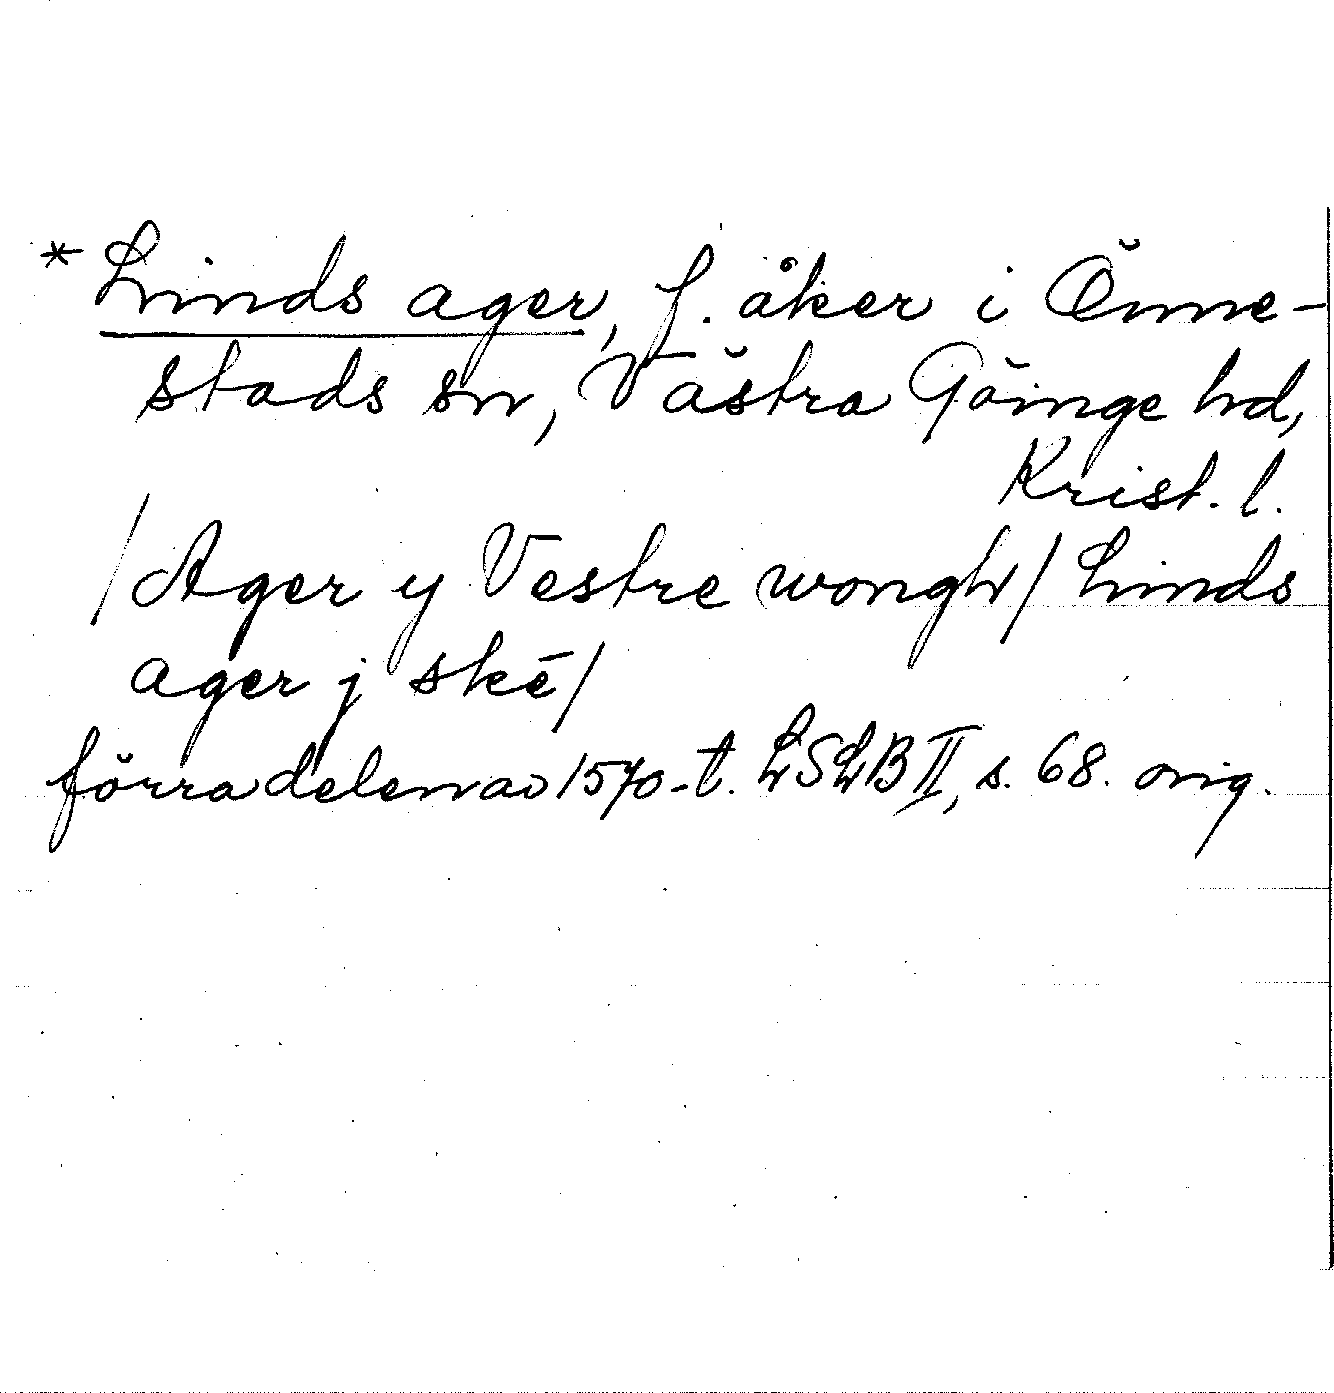 * Linds ager, f. åker i Önne-
stads sn, Västra Göinge hd,
Krist. l.
/Ager y Vestre wongh/ Linds
ager j skē/
förra delen av 1570-t. LSLB II, s. 68. orig.